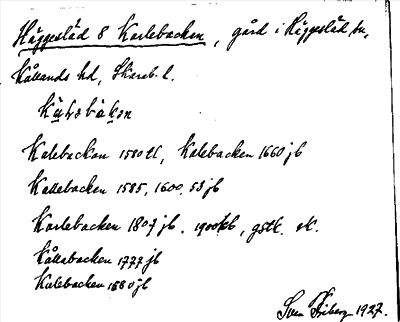 Häggesled 8 Karlebacken, gård i Häggesled sn,
Kållands hd, Skarab. l.
Kalebackan 1580 tl, Kalebacken 1660 jb
Kallebacken 1585, 1600, 53 jb
Karlebacken 1807 jb, 1900 kb, gstk. ek.
Kållabacken 1777 jb
Kalebacken 1880 jb
Sven Friberg 1927.